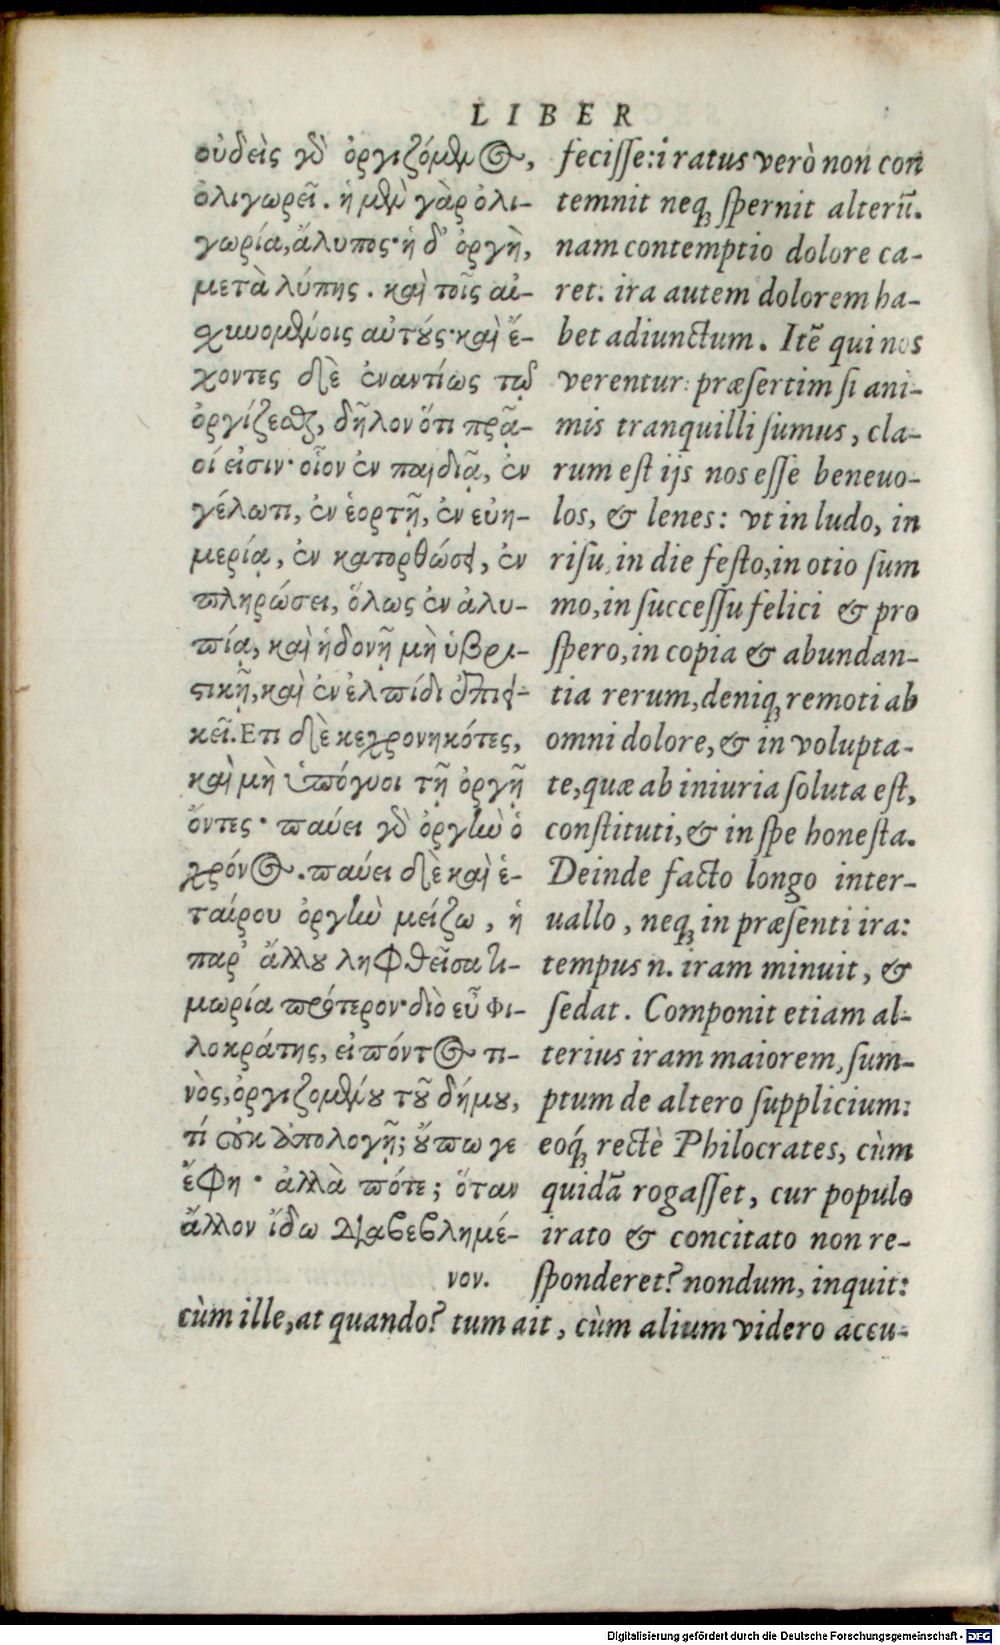 LIBER
οὐδεὶς γὸ ὀργιζόμενος,
ὀλιγωρεῖ. ἡ μὲν γὰρ ὀλι-
γωρία, ἄλυπος· ἡ δ' ὀργὴ,
μετὰ λύπης. καὶ τοῖς αἰ-
χυνομένοις αὐτούς· καὶ ἔ-
χοντες δὲ ἐναντίως τῷ
ὀργίζεσθαι, δῆλον ὅτι πρᾶ-
οί εἰσιν· οἷον ἐν παιδιᾷ, ἐν
γέλωτι, ἐν ἑορτῇ, ἐν εὐη-
μερίᾳ, ἐν κατορθώσει, ἐν
πληρώσει, ὅλως ἐν ἀλυ-
πίᾳ, καὶ ἡδονῇ μὴ ὑβρι-
στικῇ, καὶ ἐν ἐλπίδι ἐπιει-
κεῖ. Ετι δὲ κεχρονηκότες,
καὶ μὴ ὑπόγυοι τῇ ὀργῇ
ὄντες· παύει γὸ ὀργὴν ὁ
χρόνος. παύει δὲ καὶ ἑ-
ταίρου ὀργὴν μείζω, ἡ
παρ' ἄλλου ληφθεῖσα τι-
μωρία πρότερον· διὸ εὖ Φι-
λοκράτης, εἰπόντος τι-
νὸς, ὀργιζομένου τοῦ δήμου,
τί οὐκ ἀπολογῇ; οὔπω γε
ἔφη· ἀλλὰ πότε; ὅταν
ἄλλον ἴδω διαβεβλημέ-
νον.
fecisse: iratus verò non con
temnit neq; spernit alterū.
nam contemptio dolore ca-
ret: ira autem dolorem ha-
bet adiunctum. Itē qui nos
verentur: præsertim si ani-
mis tranquilli sumus, cla-
rum est ijs nos esse beneuo-
los, & lenes: vt in ludo, in
risu, in die festo, in otio sum
mo, in successu felici & pro
spero, in copia & abundan-
tia rerum, deniq; remoti ab
omni dolore, & in volupta-
te, quæ ab iniuria soluta est,
constituti, & in spe honesta.
Deinde facto longo inter-
uallo, neq; in præsenti ira:
tempus n. iram minuit, &
sedat. Componit etiam al-
terius iram maiorem, sum-
ptum de altero supplicium:
eoq́; rectè Philocrates, cùm
quidā rogasset, cur populo
irato & concitato non re-
sponderet? nondum, inquit:
cùm ille, at quando? tum ait, cùm alium videro accu-
Digitalisierung gefördert durch die Deutsche Forschungsgemeinschaft - DFG